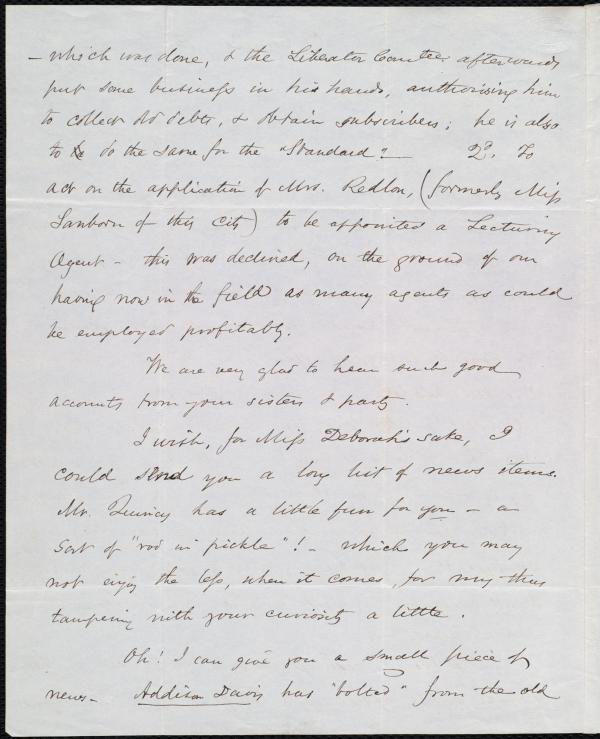 – which was done, & the Liberator Comtee. afterwards
put some business in his hands, authorising him
to collect old debts, & obtain subscribers; he is also
to do the same for the "Standard". — 2d. To
act on the application of Mrs. Redlon, (formerly Miss
Sanborn of this city) to be appointed a Lecturing
Agent – this was declined, on the ground of our
having now in the field as many agents as could
be employed profitably.
We are very glad to hear such good
accounts from your sisters & party.
I wish, for Miss Deborah's sake, I
could send you a long list of news items.
Mr. Quincy has a little fun for you – a
sort of "rod in pickle"! – which you may
not enjoy the less, when it comes, for my thus
tampering with your curiosity a little.
Oh! I can give you a small piece of
news – Addison Davis has "bolted" from the old